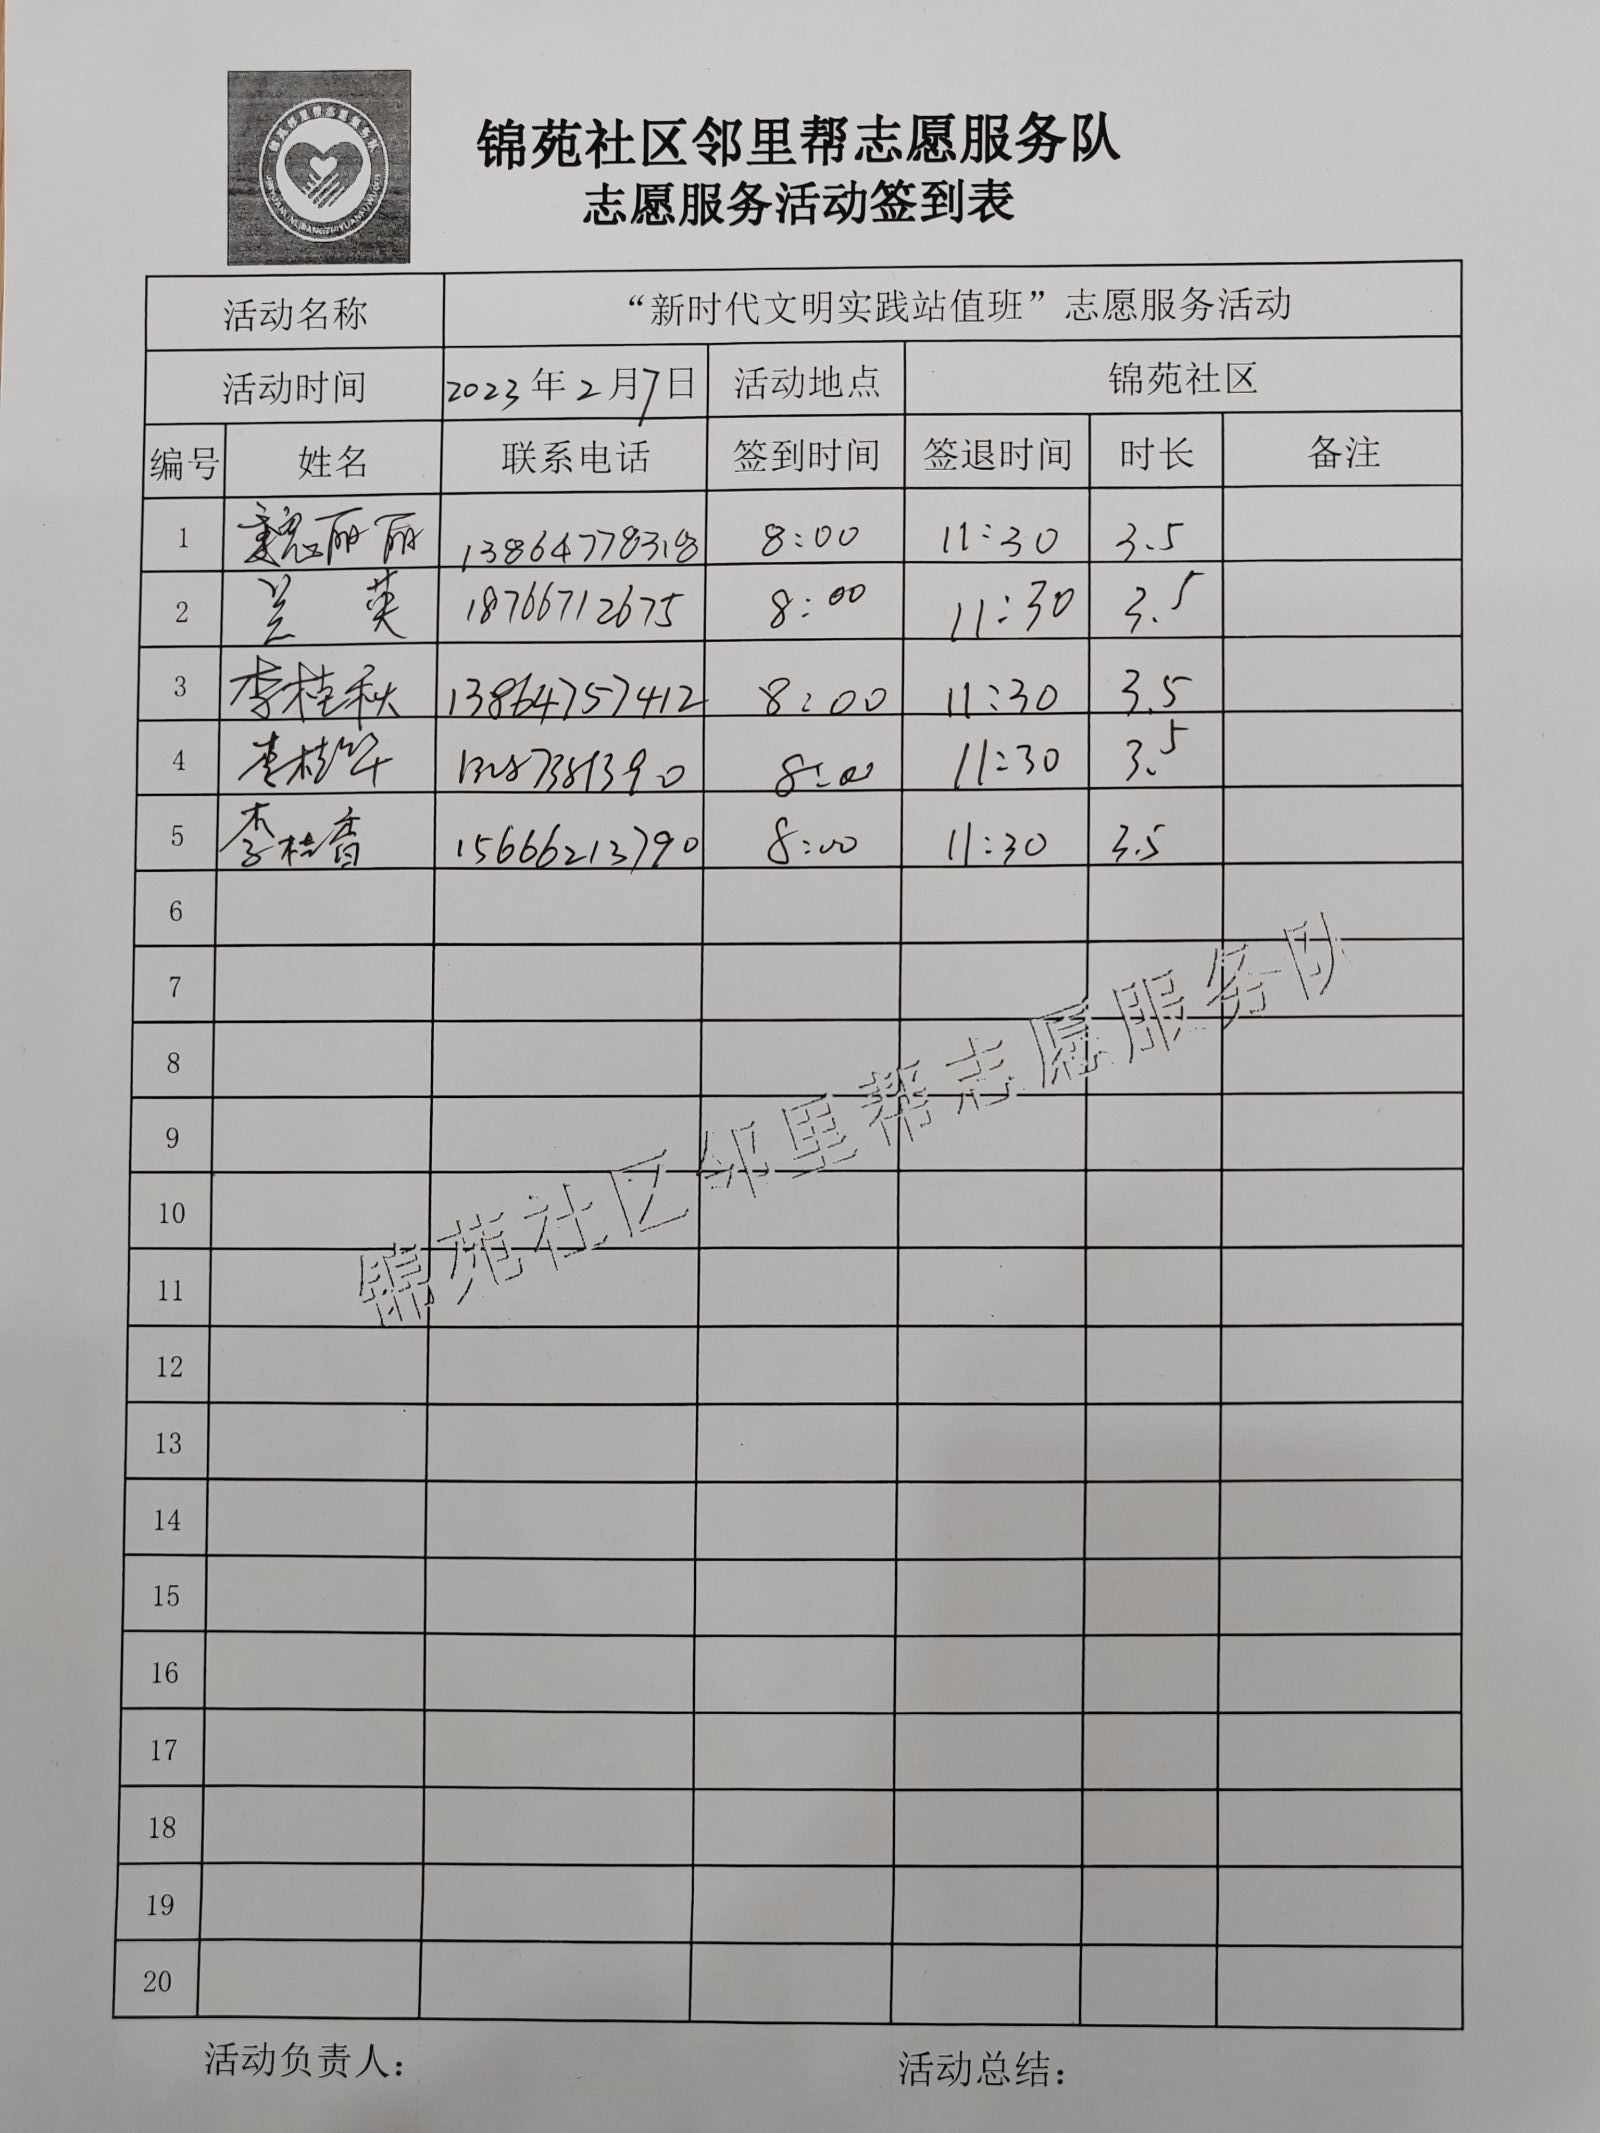 锦苑社区邻里帮志愿服务队
志愿服务活动签到表
活动名称 “新时代文明实践站值班”志愿服务活动
活动时间 2023年2月7日 活动地点 锦苑社区
编号 姓名 联系电话 签到时间 签退时间 时长 备注
1 魏丽丽 13864778318 8:00 11:30 3.5
2 兰英 18766712675 8:00 11:30 3.5
3 李桂秋 13864757412 8:00 11:30 3.5
4 李桂华 8:00 11:30 3.5
5 李桂香 15666213790 8:00 11:30 3.5
6
7
8
9
10
11
12
13
14
15
16
17
18
19
20
锦苑社区邻里帮志愿服务队
活动负责人： 活动总结：